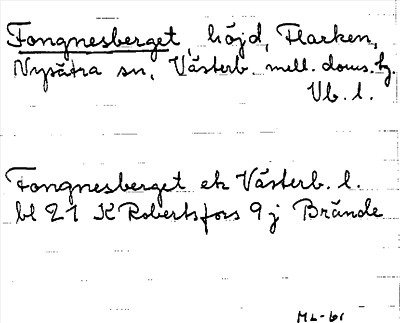 Fongnesberget, höjd, Flarken,
Nysätra sn, Västerb. mell. doms. hg.
Vb. l.
Fongnesberget ek Västerb. l.
bl 21 K Robertsfors 9 j Brände
ML-61